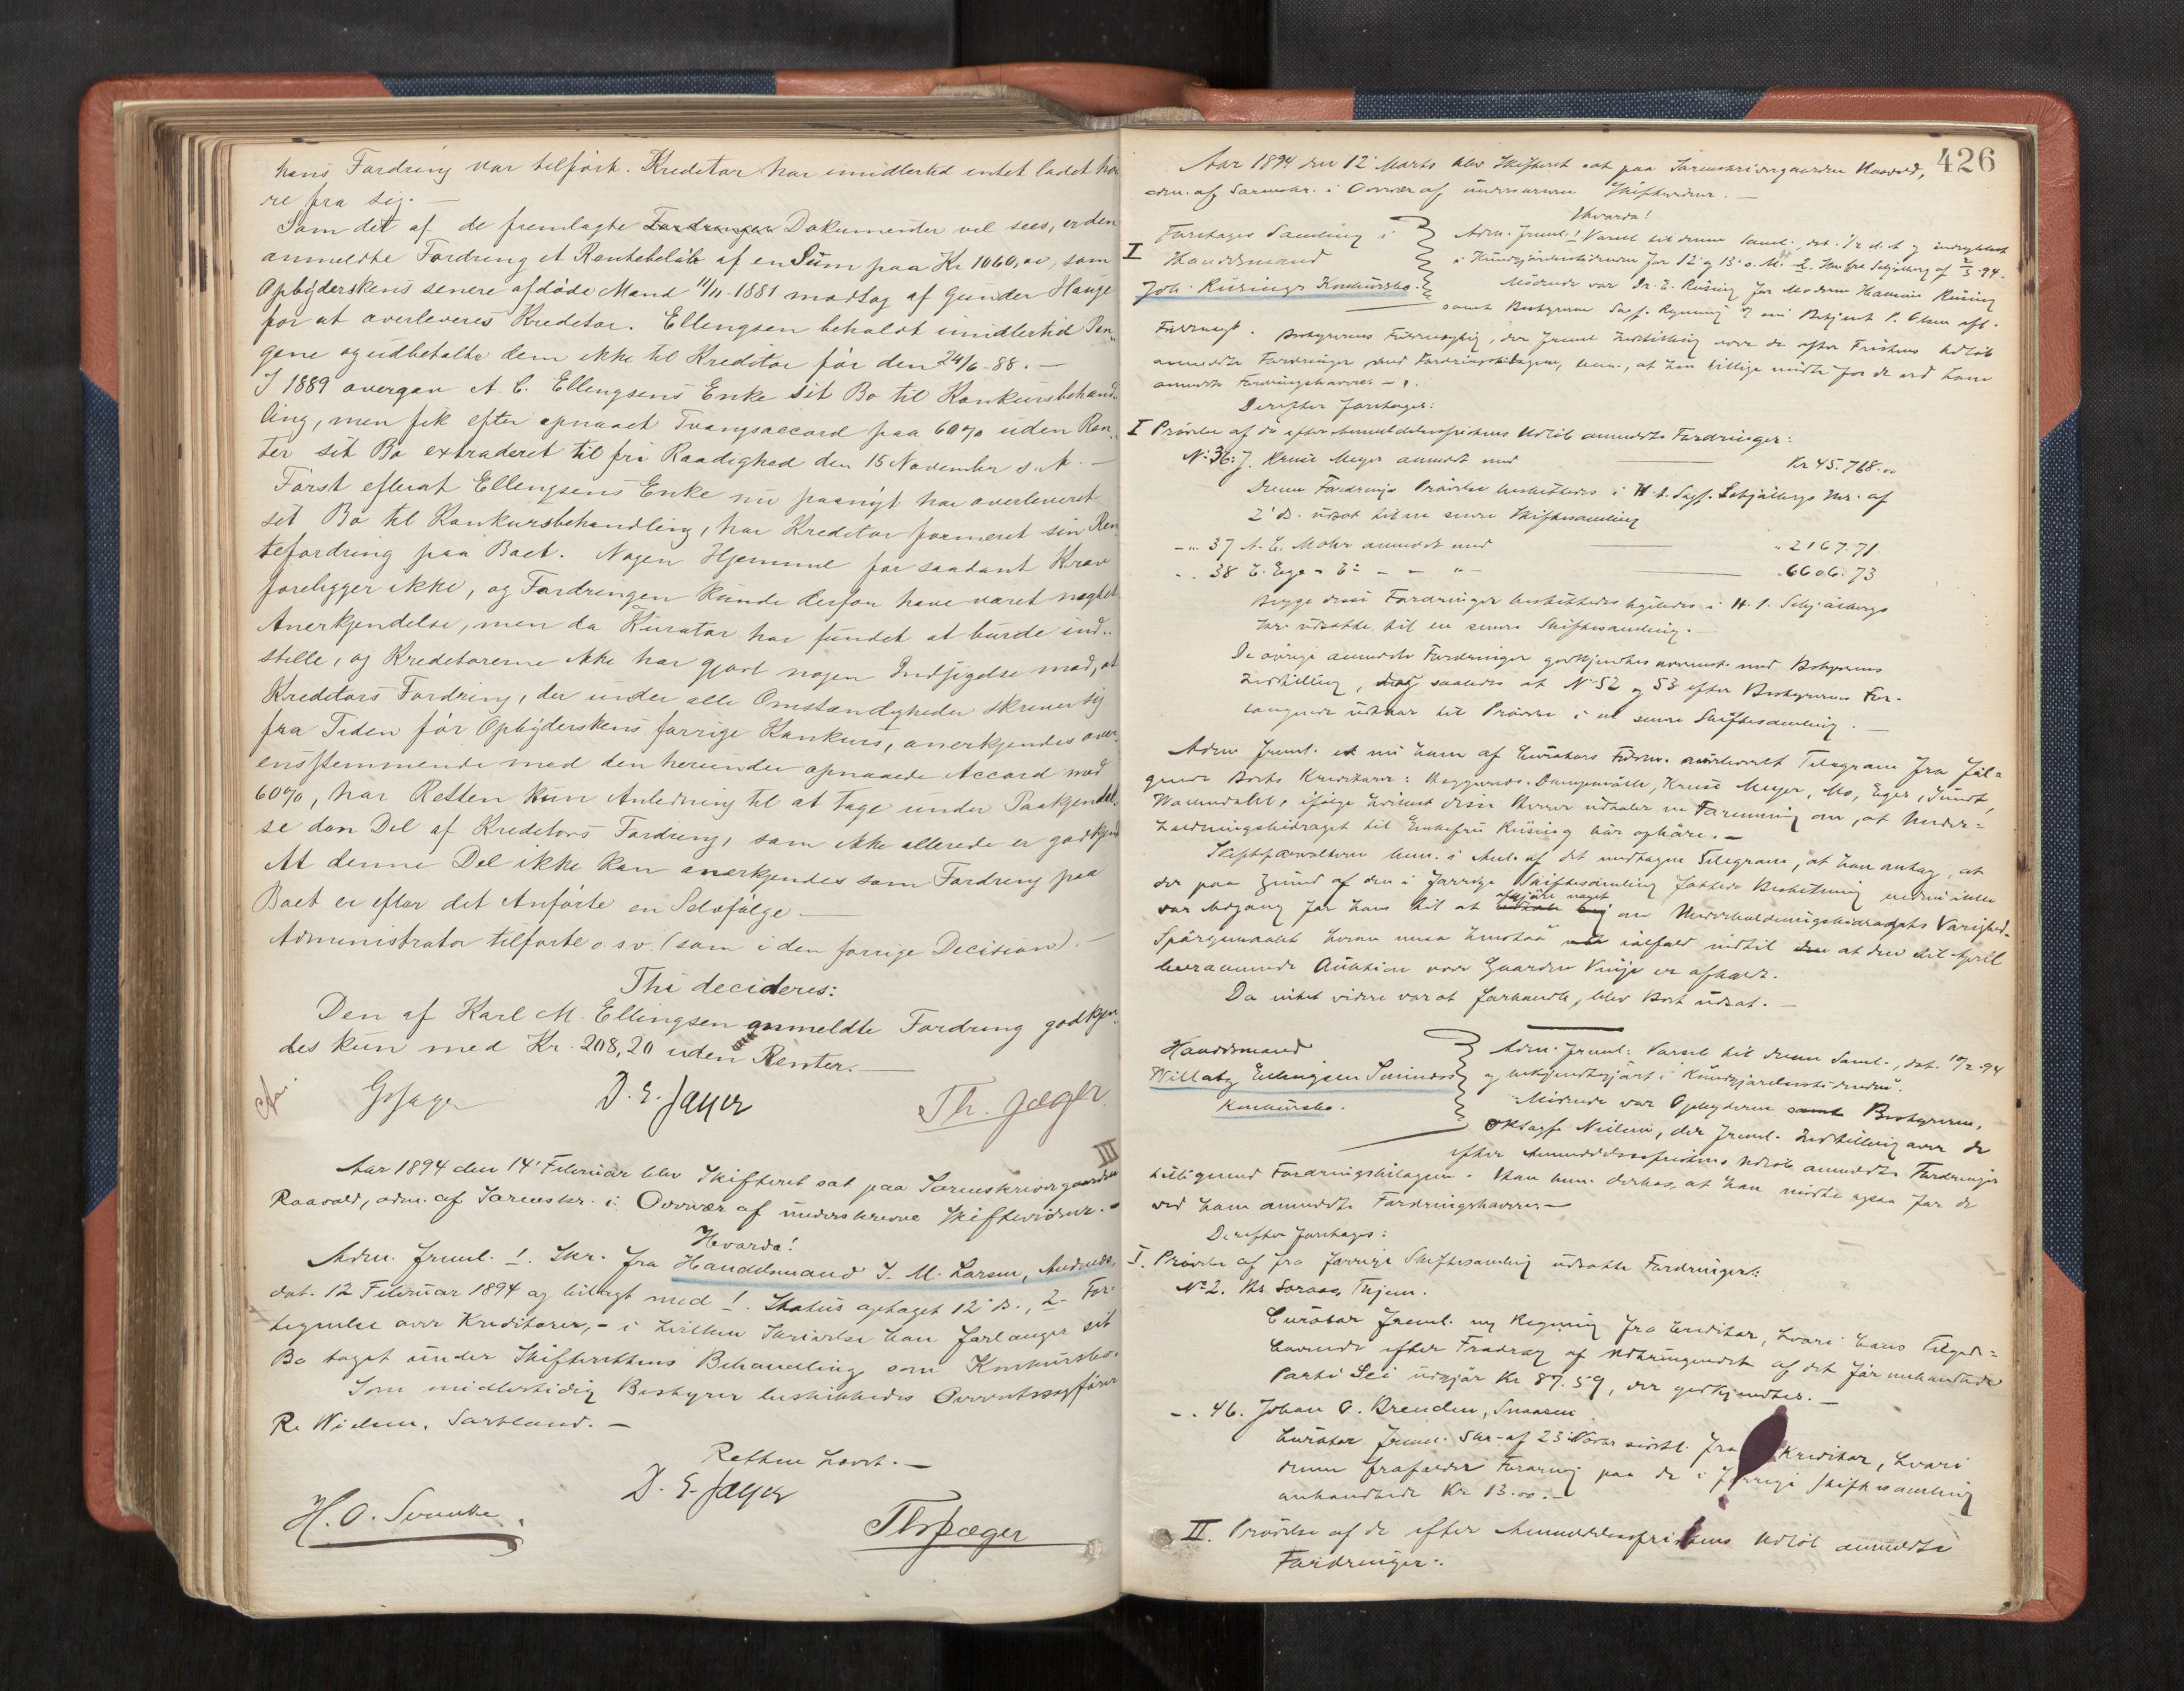 hans Fordring var tilført. Kreditor har imidlertid intet ladet hø
re fra sig. —
Som det af de fremlagte Fordringer Dokumenter vil sees, er den
anmeldte Fordring et Rentebeløb af en Sum paa Kr 1060,00, som
Opbyderskens senere afdøde Mand 11/11 1881 modtog af Gunder Hauge
for at overleveres Kreditor. Ellengsen beholdt imidlertid Pen„
gene og udbetalte dem ikke til Kreditor før den 24/6-88. —
I 1889 overgav A. C. Ellengsens Enke sit Bo til Konkursbehand„
ling, men fik efter opnaaet Tvangsaccord paa 60% uden Ren„
ter sit Bo extraderet til fri Raadighed den 15 November s. A. —
Først efterat Ellengsens Enke nu paanyt har overleveret
sit Bo til Konkursbehandling, har Kreditor formeret sin Ren
tefordring paa Boet. Nogen Hjemmel for saadant Krav
foreligger ikke, og Fordringen kunde derfor have været nægtet
Anerkjendelse, men da Kurator har fundet at burde ind„
stille, og Kreditorerne ikke har gjort nogen Indsigelse mod, at
Kreditors Fordring, der under alle Omstændigheder skrever sig
fra Tiden før Opbyderskens forrige Konkurs, anerkjendes over„
ensstemmende med den herunder opnaaede Accord med
60%, har Retten kun Anledning til at tage under Paakjendel„
se den Del af Kreditors Fordring, som ikke allerede er godkjend
At denne Del ikke kan anerkjendes som Fordring paa
Boet er efter det Anførte en Selvfølge —
Administrator tilførte o. s. v. (som i den forrige Decision). —
Thi decideres:
Den af Karl M. Ellingsen anmeldte Fordring godkjen„
des kun med Kr. 208,20 uden Renter. —
D. E. Jayer Th. Jæger.
III
Aar 1894 den 14' Februar blev Skifteret sat paa Sorenskrivergaarden
Raavold, adm. af Sorenskr. i Overvær af underskrevne Skiftevidner. —
Hvorda!
Adm. freml. 1. Skr. fra Handelsmand J. M. Larsen, Andenæs,
dat. 12 Februar 1894 og bilagt med 1. Status optaget 12' ds., 2. For„
tegnelse over Kreditorer, – i hvilken Skrivelse han forlanger sit
Bo taget under Skifterettens Behandling som Konkursbo.
Som midlertidig Bestyrer beskikkedes Overretssagfører
R. Nielsen, Sortland. —
Retten hævet. —
D. E. Jayer
H. O. Svendke. Th Jæger
426
Aar 1894 den 12' Marts blev Skifteret sat paa Sorenskrivergaarden Raavold,
adm. af Sorenskr. i Overvær af underskrevne Skiftevidner. —
Hvorda!
I Foretoges Samling i
Handelsmand
Joh. Rüsings Konkursbo.
Adm. freml. 1 Varsel til denne Saml., dat. 1/2 d. A. og indrykket
i Kundgjørelsestidenden for 12' og 13' o. M. 2. Skr fra Schjølberg af 2/3 94.
Mødende var Dr. Z. Rüsing for Moderen Hannine Rüsing
samt Bestyreren Sagf. Rynning ved Betjent P. Olsen efter
Fuldmagt. Bestyrerens Fuldmægtig, der freml. Indstilling over de efter Fristens Udløb
anmeldte Fordringer med Fordringsbilagene, bem., at han tillige mødte for de ved ham
anmeldte Fordringshavere. —
Derefter foretoges:
I Prøvelse af de efter Anmeldelsesfristens Udløb anmeldte Fordringer:
No 36: J. Kruse Meyer anmeldt med — Kr 45.768.00
Denne Fordrings Prøvelse besluttedes i H. t. Sagf. Schjølbergs Skr. af
2' ds. udsat til en senere Skiftesamling
-„- 37 A. E. Mohr anmeldt med — „ 2167.71.
-„- 38 E. Eger „ Do — — „ — .6606.73
Begge disse Fordringer besluttedes ligeledes i H. t. Schjølbergs
Skr. udsatte til en senere Skiftesamling. —
De øvrige anmeldte Fordringer godkjendtes overenst. med Bestyrerens
Indstilling, dog saaledes at No 52 og 53 efter Bestyrerens For„
langende udstaar til Prøvelse i en senere Skiftesamling. —
Adm freml. et nu ham af Curators Fuldm. overleveret Telegram fra føl=
gende Boets Kreditorer: Dampmølle, Kruse Meyer, Mo, Eger, Sundt,
ifølge hvilket disse udtaler en Formening om, at Under=
holdningsbidraget til Enkefru Rüsing bør ophøre. —
Skifteforvalteren bem. i Anl. af det modtagne Telegram, at han antog, at
der paa Grund af den i forrige Skiftesamling fattede Beslutning endnu ikke
var Adgang for ham til at afgjøre noget om Underholdningsbidragets Varighed.
Spørgsmaalet herom maa henstaa ialfald indtil at den til April
berammede Auktion over Gaarden Vinje er afholdt.
Da intet videre var at forhandle, blev Boet udsat. —
Handelsmand
Willaby Ellingsen Svinøes
Konkursbo.
Adm. freml. Varsel til denne Saml., dat. 10/2-94
og bekjendtgjørt i Kundgjørelsestidenden.
Mødende var Opbyderen samt Bestyreren,
ORsagf Nielsen, der freml. Indstilling over de
efter Anmeldelsesfristens Udløb anmeldte Fordringer
tilligemed Fordringsbilagene. Han bem. derhos, at han mødte ogsaa for de
ved ham anmeldte Fordringshavere —
Derefter foretoges:
I. Prøvelse af fra forrige Skiftesamling udsatte Fordringer:
No 2. Thjem.
Curator freml. ny Regning fra Creditor, hvori hans Tilgode=
havende efter Fradrag af Udbringendet af det før omhandlede
Parti Sei udgjør Kr 87.59, der godkjendtes. —
-„. 46. Johan O. Brenden, Snaasen
Curator freml. Skr. af 23' fra Kreditor, hvori
denne frafalder Fordring paa de i forrige Skiftesamling
omhandlede Kr 13.00. —
II. Prøvelse af de efter Anmeldelsesfristens Udløb anmeldte
Fordringer: